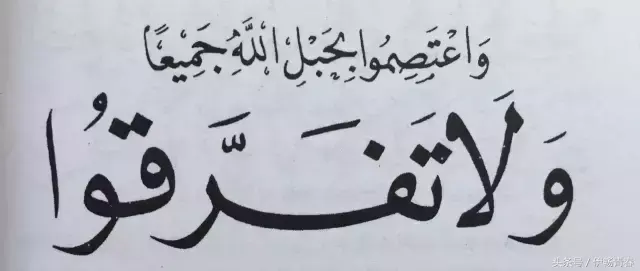 وَاعْتَصِمُوا بِحَبْلِ اللَّهِ جَمِيعًا
وَلَا تَفَرَّقُوا
头条号 / 伊扬青春